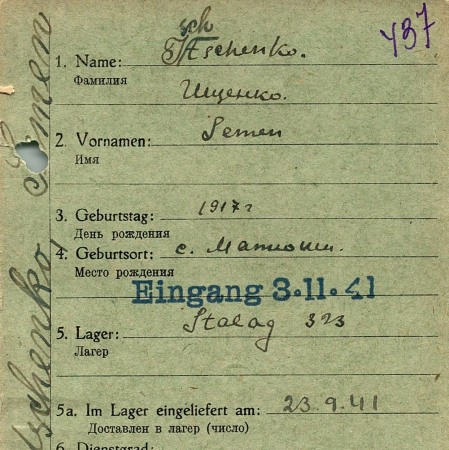 437
sch
1. Name: Itschenko.
Фамилия
Ищенко.
2. Vornamen: Semen
Имя
3. Geburtstag: 1917г
День рождения
4. Geburtsort: с.
Место рождения
Eingang 3.11.41
5. Lager: Stalag 323
Лагер
5a. Im Lager eingeliefert am: 23.9.41
Доставлен в лагер (число)
6. Dienstgrad:
tschenko, Semen